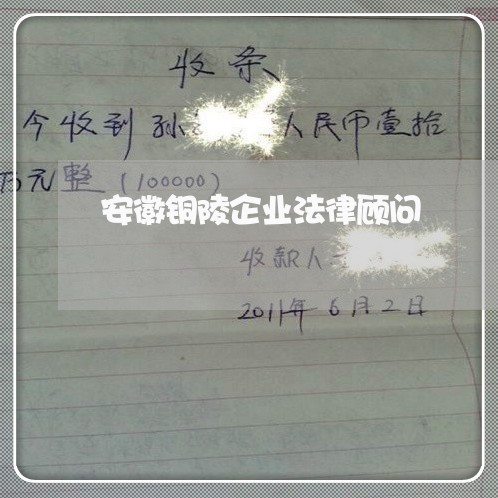 收条
今收到孙 人民币壹拾
万元整（100000）
安徽铜陵企业法律顾问
收款人
2011年6月2日